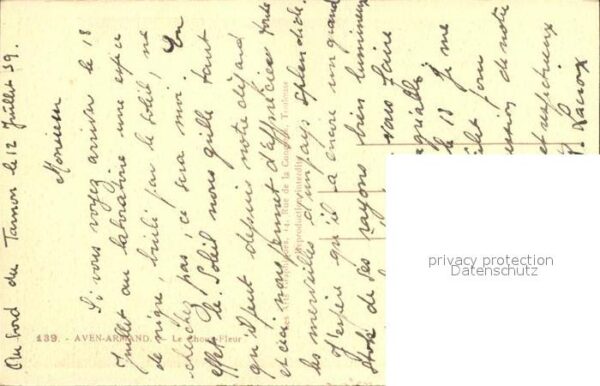 Au bord du Tarnon le 12 Juillet 39.
Monsieur
Si vous voyez arriver le 18
Juillet au laboratoire une espèce
de nègre, brûlé par le soleil, ne
cherchez pas, ce sera moi. En
effet le Soleil nous grille tant
qu'il peut depuis notre départ
et ceci nous permet d'apprécier toute
les merveilles d'un pays splendide.
J'espère qu'il a encore un grand
stock de ses rayons bien lumineux
vous faire
agréable
le 13 Je me
de notre
et respectueux
P. Lacroix
139. - AVEN-ARMAND. - Le Chou-Fleur
Rue de la Toulouse
Reproduction interdite
privacy protection
Datenschutz